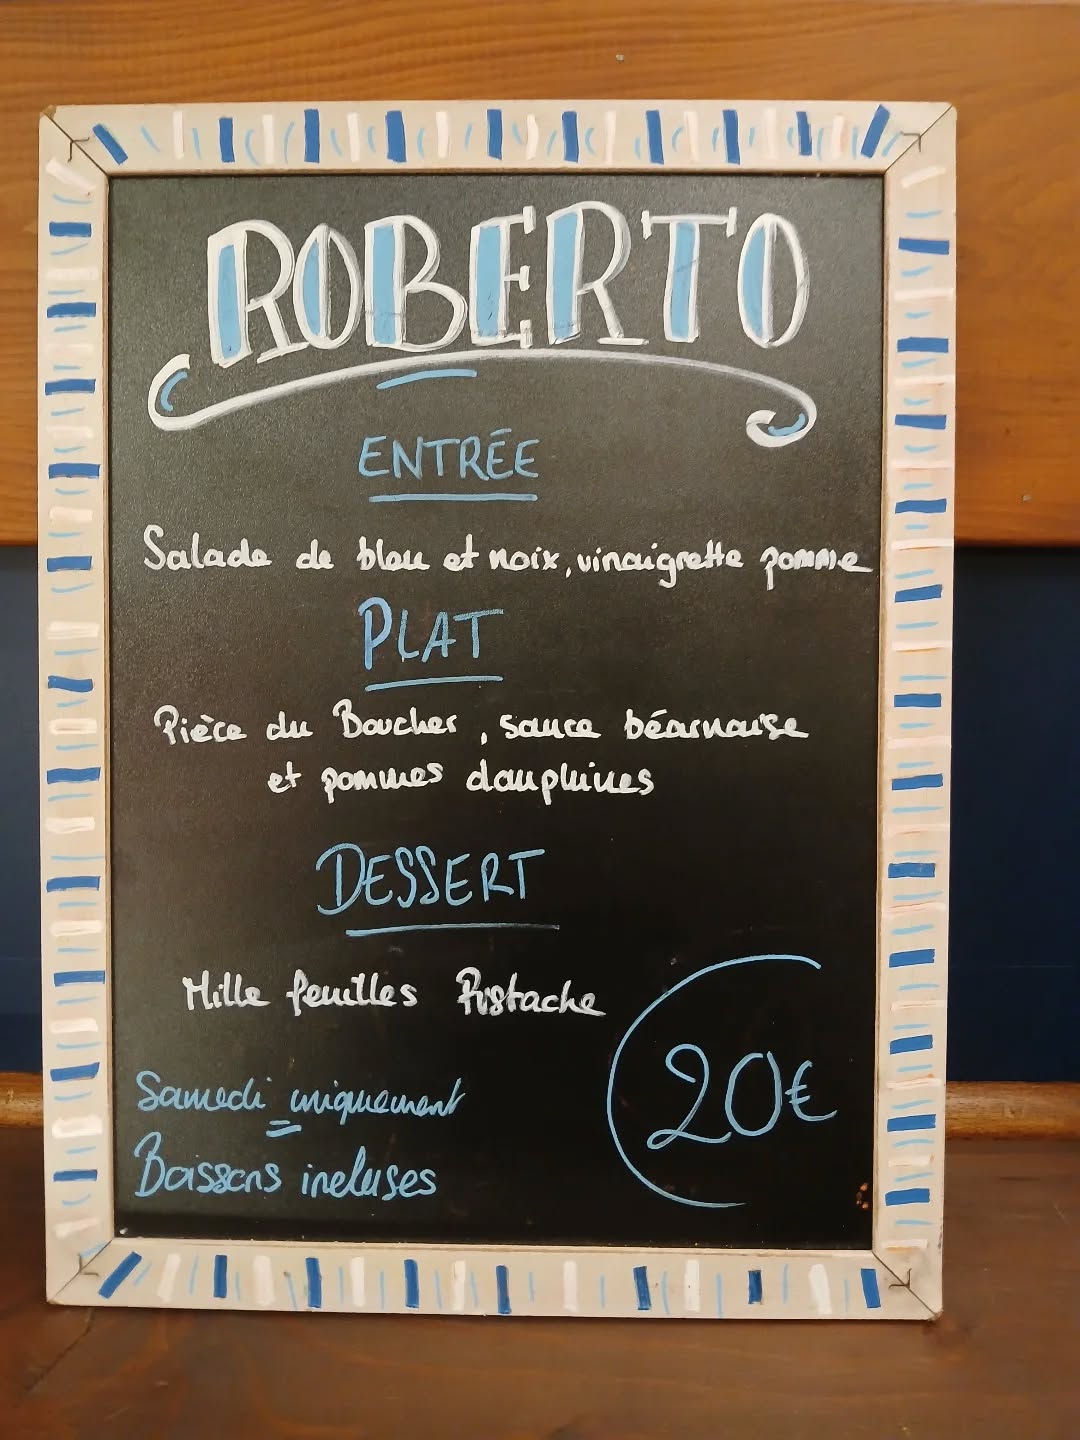 ROBERTO
ENTRÉE
Salade de bleu et noix, vinaigrette pomme
PLAT
Pièce du Boucher, sauce béarnaise
et pommes dauphines
DESSERT
Mille feuilles Pistache
Samedi uniquement
Boissons incluses
20€